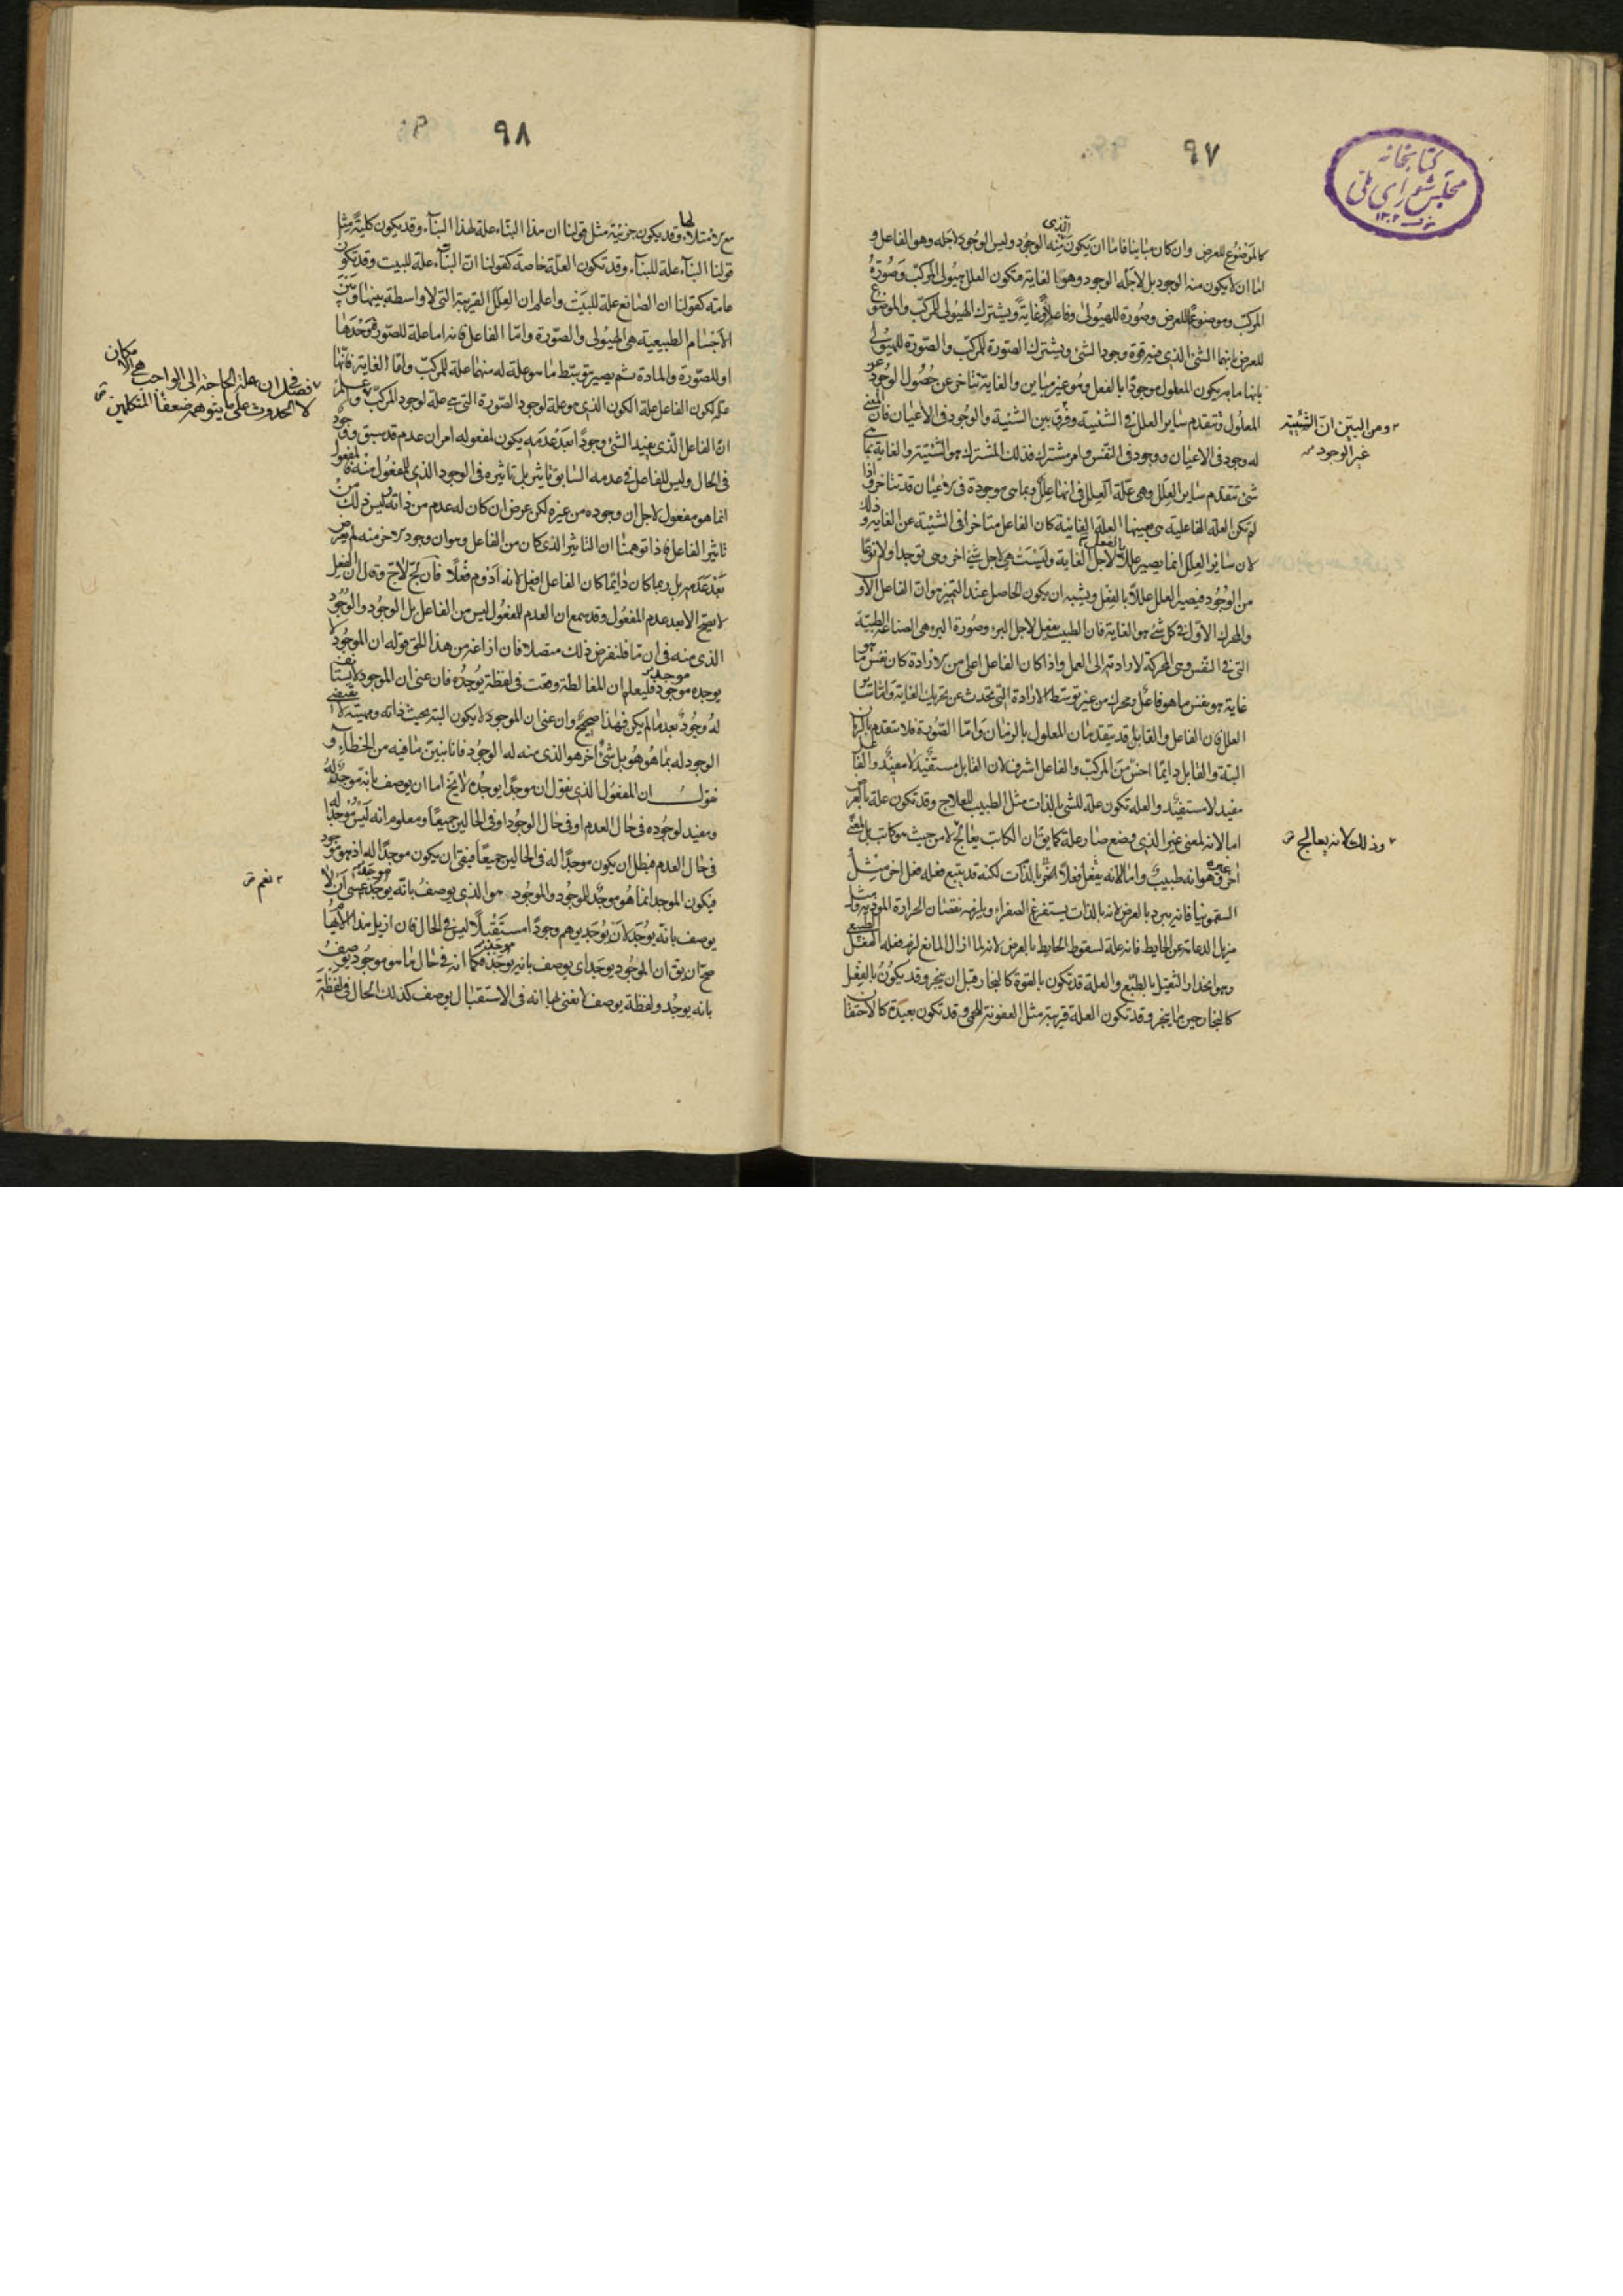 ٩٧
كتابخانه
مجلس شورای ملی
١٣٠٢
الذى
كالموضوع للعرض وان كان مباينا فاما ان يكون منه الوجود وليس الوجود لاجله وهو الفاعل و
اما ان لا يكون منه الوجود بل لاجله الوجود وهو الغاية فتكون العلل هيولى المركب وصورة
المركب وموضوعا للعرض وصورة للهيولى وفاعلا وغاية ويشترك الهيولى للمركب والموضوع
للعرض بانهما الشئ الذى فيه قوة وجود الشئ ويشترك الصورة للمركب والصورة للهيولى
بانها ما به يكون المعلول موجودا بالفعل وهو غير مباين والغاية تتاخر عن حصول الوجود
المعلول وتتقدم ساير العلل فى الشيئية وفرق بين الشيئية والوجود فى الاعيان فان المعنى
ومن البين ان الشيئية
غير الوجود
له وجود فى الاعيان ووجود فى النفس وامر مشترك فذلك المشترك هو الشيئية والغاية بما هى
شئ تتقدم ساير العلل وهى علة العلل فى انها علل وبما هى موجودة فى الاعيان قد تتاخر واذا
لم تكن العلة الفاعلية هى بعينها العلة الغائية كان الفاعل متاخرا فى الشيئية عن الغاية وذلك
لان ساير العلل انما يصير عللا بالفعل لاجل الغاية وليست هى لاجل شئ اخر وهى توجد اولا نوعا
من الوجود فيصير العلل عللا بالفعل ويشبه ان يكون الحاصل عند التميز هو ان الفاعل الاول
والمحرك الاول فى كل شئ هو الغاية فان الطبيب يفعل لاجل البرء وصورة البرء هى الصناعة الطبية
التى فى النفس وهى المحركة لارادته الى العمل واذا كان الفاعل اعلى من الارادة كان نفس ما هو
غاية هو بعينه ما هو فاعل ومحرك من غير توسط الارادة التى تحدث عن تحريك الغاية واما ساير
العلل فان الفاعل والقابل قد يتقدمان المعلول بالزمان واما الصورة فلا تتقدم بالزمان
البتة والقابل دايما اخس من المركب والفاعل اشرف لان القابل مستفيد لا مفيد والفاعل
مفيد لا مستفيد والعلة تكون علة للشئ بالذات مثل الطبيب للعلاج وقد تكون علة بالعرض
اما لانه لمعنى غير الذى وضع صار علة كما يق ان الكاتب يعالج لا من حيث هو كاتب بل لمعنى
وذلك لانه يعالج
اخر غيره وهو انه طبيب واما لانه يفعل فعلا بالذات لكنه قد يتبع فعله فعل اخر مثل
السقمونيا فانه يبرد بالعرض لانه بالذات يستفرغ الصفراء ويلزمه نقصان الحرارة الموذية ومثل
مزيل الدعامة عن الحايط فانه علة لسقوط الحايط بالعرض لانه لما ازال المانع لزم فعله الفعل الطبيعى
وهو انحدار الثقيل بالطبع والعلة قد تكون بالقوة كالنجار قبل ان ينجر وقد يكون بالفعل
كالنجار حين ما ينجر وقد تكون العلة قريبة مثل العفونة للحمى وقد تكون بعيدة كالاحتقان
٩٨
مع الامتلاء لها وقد يكون جزئية مثل قولنا ان هذا البناء علة لهذا البناء وقد يكون كلية مثل
قولنا البناء علة للبناء وقد تكون العلة خاصة كقولنا ان البناء علة للبيت وقد تكون
عامة كقولنا ان الصانع علة للبيت واعلم ان العلل القريبة التى لا واسطة بينها وبين
الاجسام الطبيعية هى الهيولى والصورة واما الفاعل فانه اما علة للصورة وحدها
او للصورة والمادة ثم يصير بتوسط ما هو علة له منهما علة للمركب واما الغاية فانها
علة لكون الفاعل علة الكون الذى هو علة لوجود الصورة التى هى علة لوجود المركب واعلم
فصل فى ان علة الحاجة الى الواجب هى الامكان
لا الحدوث على ما يتوهمه ضعفا المتكلمين
ان الفاعل الذى يفيد الشئ وجودا بعد عدمه يكون لمفعوله امران عدم قد سبق ووجود
فى الحال وليس للفاعل فى عدمه السابق تاثير بل تاثيره فى الوجود الذى للمفعول منه فالمفعول
انما هو مفعول لاجل ان وجوده من غيره لكن عرض ان كان له عدم من ذاته وليس ذلك من
تاثير الفاعل فاذا توهمنا ان التاثير الذى كان من الفاعل وهو ان وجود الاخر منه لم يعرض
بعد عدم بل ربما كان دايما كان الفاعل افعل لانه ادوم فعلا فان لج لاج وقال ان الفعل
لا يصح الا بعد عدم المفعول وقد سمع ان العدم للمفعول ليس من الفاعل بل الوجود والوجود
الذى منه فى آن ما فلنفرض ذلك متصلا فان ازاغه من هذا الحق قوله ان الموجود لا
يوجده موجد فليعلم ان المغالطة وقعت فى لفظة يوجده فان عنى ان الموجود لا يستانف
له وجود بعد ما لم يكن فهذا صحيح وان عنى ان الموجود لا يكون البتة بحيث ذاته ومهيته لا يقتضى
الوجود له بما هو هو بل شئ اخر هو الذى منه له الوجود فانا نبين ما فيه من الخطاء و
نقول ان المفعول الذى نقول ان موجدا يوجده لا يخ اما ان يوصف بانه موجد له
ومفيد لوجوده فى حال العدم او فى حال الوجود او فى الحالين جميعا ومعلوم انه ليس موجدا له
فى حال العدم فبطل ان يكون موجدا له فى الحالين جميعا فبقى ان يكون موجدا له اذ هو موجود
فيكون الموجد انما هو موجد للموجود والموجود هو الذى يوصف بانه يوجد عسى ان لا
نعم
يوصف بانه يوجد لان يوجد يوهم وجودا مستقبلا ليس فى الحال فان ازيل هذا الايهام
صح ان يق ان الموجود يوجد اى يوصف بانه موجد فكما انه فى حال ما هو موجود يوصف
بانه يوجد ولفظة يوصف لا نعنى بها انه فى الاستقبال يوصف كذلك الحال فى لفظة